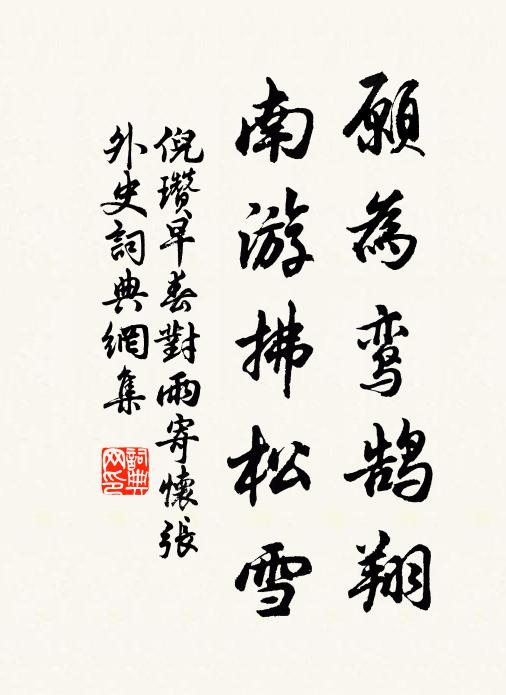 願為鸾鹄翔
南游拂松雪
倪瓚早春對雨寄懷張
外史詞典網集
詞典
网印